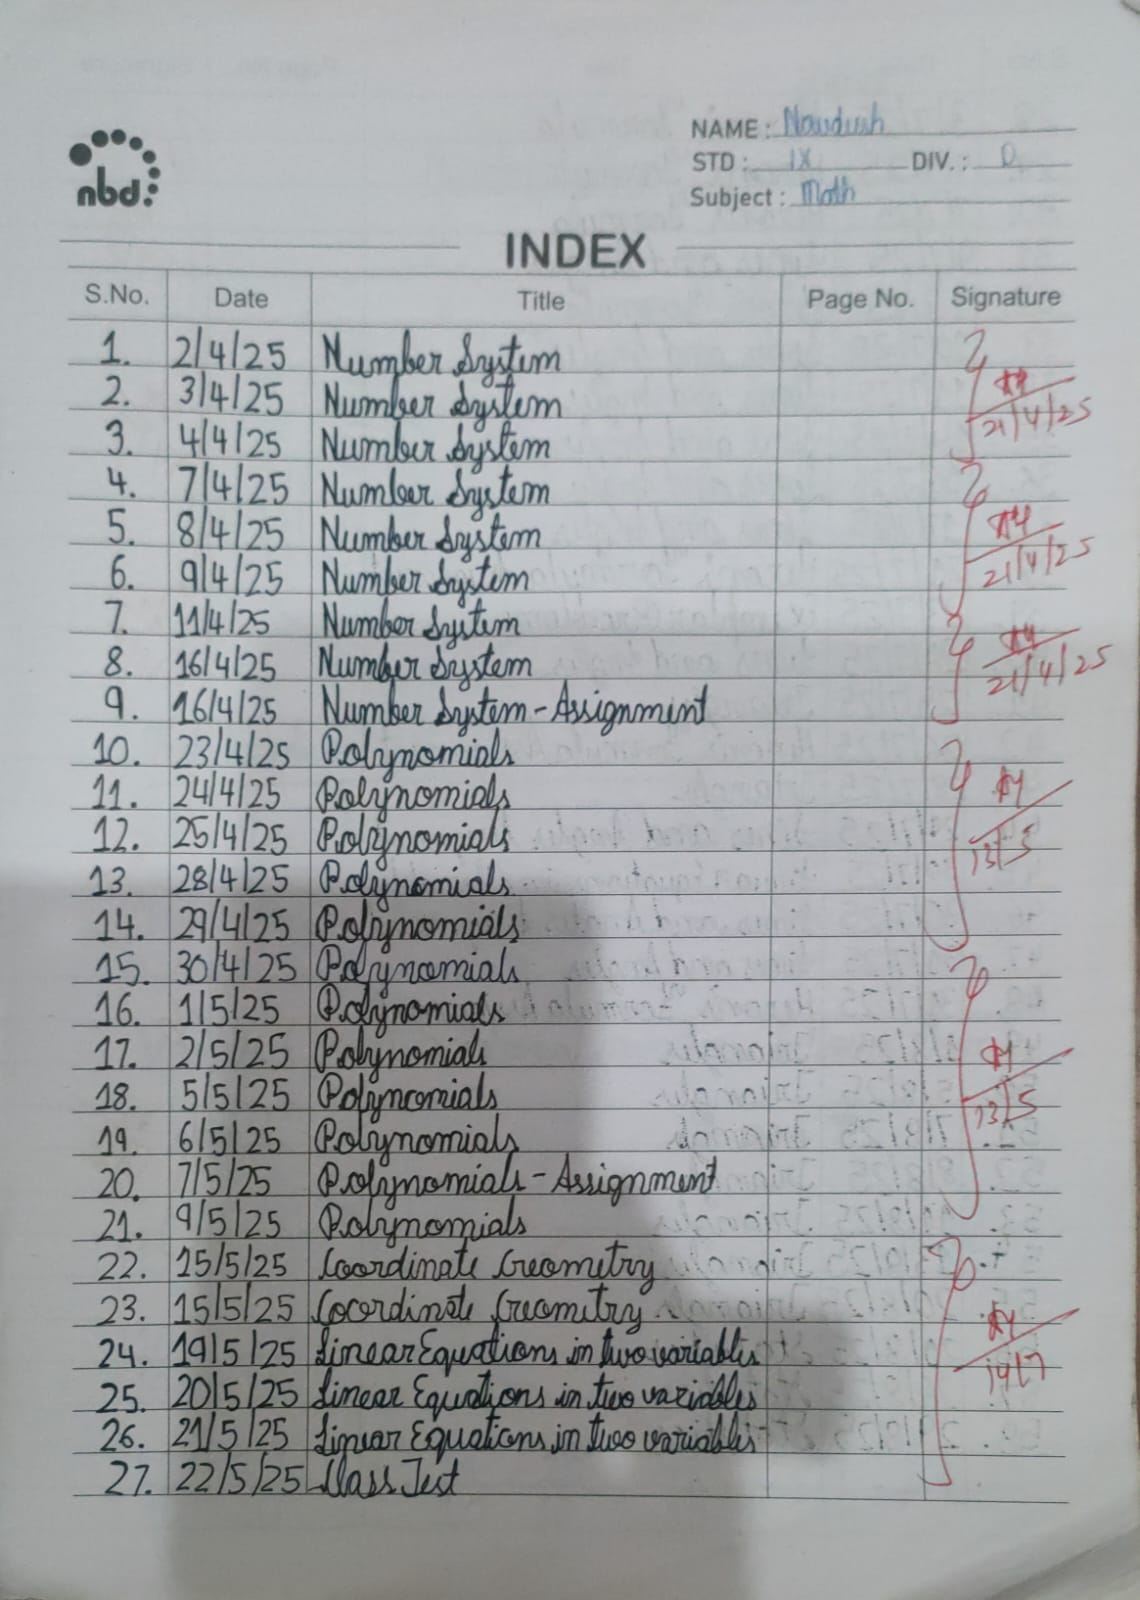 nbd
NAME : Navdush
STD : IX DIV. : D
Subject : Math
INDEX
S.No. Date Title Page No. Signature
1. 2/4/25 Number System
2. 3/4/25 Number System
21/4/25
3. 4/4/25 Number System
4. 7/4/25 Number System
5. 8/4/25 Number System
21/4/25
6. 9/4/25 Number System
7. 11/4/25 Number System
8. 16/4/25 Number System
21/4/25
9. 16/4/25 Number System - Assignment
10. 23/4/25 Polynomials
11. 24/4/25 Polynomials
12. 25/4/25 Polynomials
13/5
13. 28/4/25 Polynomials
14. 29/4/25 Polynomials
15. 30/4/25 Polynomials
16. 1/5/25 Polynomials
17. 2/5/25 Polynomials
18. 5/5/25 Polynomials
13/5
19. 6/5/25 Polynomials
20. 7/5/25 Polynomials - Assignment
21. 9/5/25 Polynomials
22. 15/5/25 Coordinate Geometry
23. 15/5/25 Coordinate Geometry
24. 19/5/25 Linear Equations in two variables
14/7
25. 20/5/25 Linear Equations in two variables
26. 21/5/25 Linear Equations in two variables
27. 22/5/25 Class Test